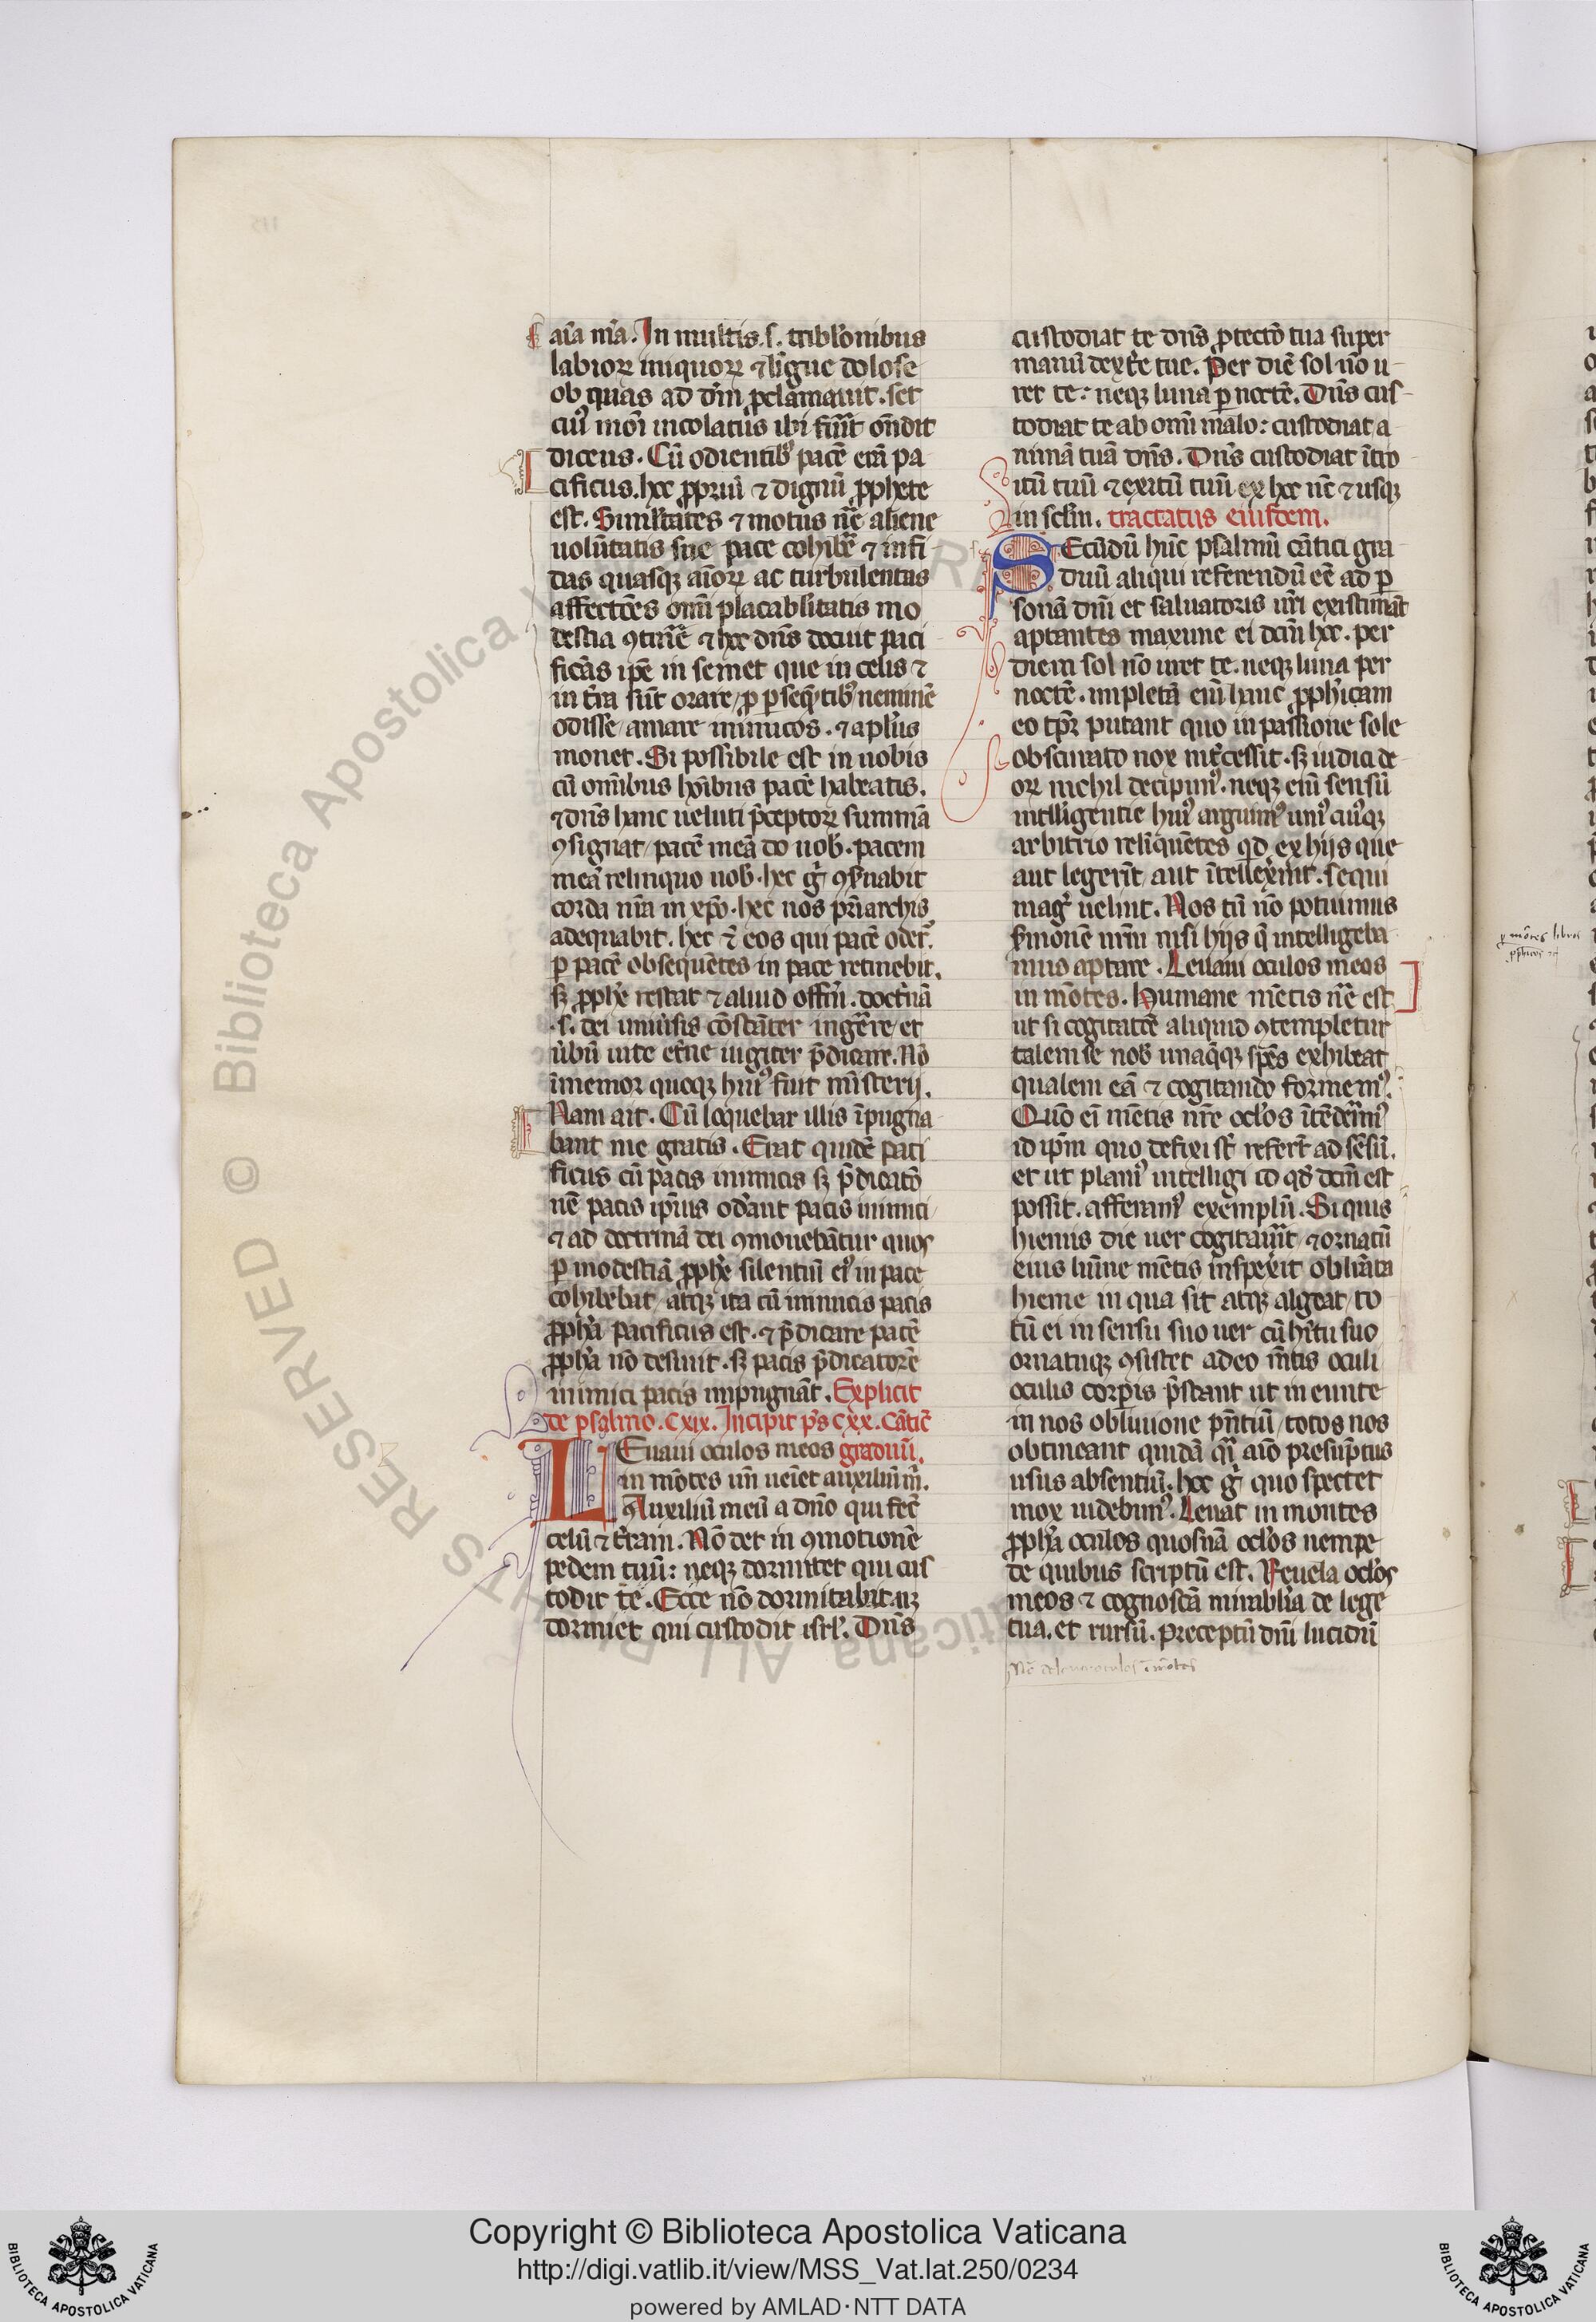 aīa mea. In multis .s. tribl'onibus
labioꝝ iniquoꝝ ⁊ līgue dolose
ob quas ad dn̄m ꝓclamauit. set
cui' mōi incolatus ibi fuīt on̄dit
dicens. Cū odientib' pacē erā pa
cificus. hec ꝓpriū ⁊ dignū ꝓphete
est. Simltates ⁊ motus nr̄e aliene
uolūtatis sue pace cohibē ⁊ infi
das quasqꝫ aīoꝝ ac turbulentas
affectōes omī placabilitatis mo
destia ꝯtinē ⁊ hec dn̄s docuit paci
ficās ipē in semet que in celis ⁊
in t'ra sūt orare, ꝓ ꝑseq̄ntib' neminē
odisse, amare inimicos. ⁊ apl'us
monet. Si possibile est in uobis
cū omībus hōibus pacē habeatis.
⁊ dn̄s hanc ueluti p̄ceptoꝝ summā
ꝯsignat, pacē meā do uob'. pacem
meā relinquo uob'. hec g' ꝯs'uabit
corda nr̄a in xp̄o. hec nos pr̄iarchis
adequabit. hec ⁊ eos qui pacē oder̄.
ꝑ pacē obsequētes in pace retinebit.
sꝫ ꝓph'e restat ⁊ aliud offm̄. doct'nā
.s. dei uniu'sis cōstāter inger̄e et
u'bū uite et'ne iugiter p̄dicare. Nō
īmemor quoqꝫ hui' fuit mīsterij.
Nam ait. Cū loquebar illis īpugna
bant me gratis. Erat quidē paci
ficus cū pacis inimicis sꝫ p̄dicatō
nē pacis ip̄ius od'ant pacis inimici
⁊ ad doctrinā dei ꝯmouebātur quos
ꝑ modestiā ꝓph'e silentiū ei' in pace
cohibebat, atqꝫ ita cū inimicis pacis
ꝓph'a pacificus est. ⁊ p̄dicare pacē
ꝓph'a nō desinit. sꝫ pacis p̄dicatorē
inimici pacis impugnāt. Explicit
de psalmo .cxix. Incipit ps̄ cxx. Cātic̄
LEuaui oculos meos graduū.
in mōtes uñ ueīet auxiliū m̄.
Auxiliū meū a dn̄o qui fec̄
celū ⁊ t'ram. Nō det in ꝯmotionē
pedem tuū: neqꝫ dormitet qui cus
todit te. Ecce nō dormitabit neqꝫ
dormiet qui custodit isrl'. Dn̄s
custodiat te dn̄s ꝓtectō tua super
manū dext'e tue. Per diē sol nō u-
ret te: neqꝫ luna ꝑ noctē. Dn̄s cus-
todiat te ab omī malo: custodiat a
nimā tuā dn̄s. Dn̄s custodiat ītro
itū tuū ⁊ exitū tuū ex hoc nc̄ ⁊ usqꝫ
in sclm̄. tractatus eiusdem.
SEcūdū hūc psalmū cātici gra
duū aliqui referendū eē ad ꝑ
sonā dn̄i et saluatoris nr̄i existimāt
aptantes maxime ei dcm̄ hoc. per
diem sol nō uret te. neqꝫ luna per
noctē. impletā eiū hanc ꝓph'icam
eo tp̄r putant quo in passione sole
obscurato nox int'cessit. sꝫ iudicia e
oꝝ nichil decipim'. neqꝫ eiū sensū
intlligentie hui' arguim' uni' cui'qꝫ
arbitrio relīquētes qd ex hijs que
aut legerīt, aut ītellex'int. sequi
mag' uelint. Nos tū nō potuimus
s'monē nr̄m nisi hijs q̄ intelligeba
mus aptare. Leuaui oculos meos
in mōtes. Humane mētis nr̄e est
ut si cogitatōe aliquid ꝯtempletur
talem se nob' unaq̄qꝫ spēs exhibeat
qualem eā ⁊ cogitando formem'.
Quō ei mētis nr̄e oclos ītēderim'
id ip̄m quo defixi sr̄ refert' ad sēsū.
et ut plani' intelligi id qd' dcm̄ est
possit. afferam' exemplū. Si quis
hiemis die uer cogitau'it, ⁊ ornatū
eius lumine mētis inspexit, oblit'ata
hieme in qua sit atqꝫ algeat, to
tū ei in sensu suo uer cū h'itu suo
ornatuqꝫ ꝯsistet adeo mētis oculi
oculis corꝑis p̄stant ut in eunte
in nos obliuione pn̄tiū, totos nos
obtineant quidā q'i aīo presūptus
usus absentiū. hoc g' quo spectet
mox uidebim'. Leuat in montes
ꝓph'a oculos quosnā oclos nempe
de quibus scriptū est. Reuela oclos
meos ⁊ cognoscā mirabilia de lege
tua. et rursū. preceptū dn̄i lucidū
ꝑ mōtes libros
ꝓpheticos
Copyright © Biblioteca Apostolica Vaticana
http://digi.vatlib.it/view/MSS_Vat.lat.250/0234
powered by AMLAD·NTT DATA